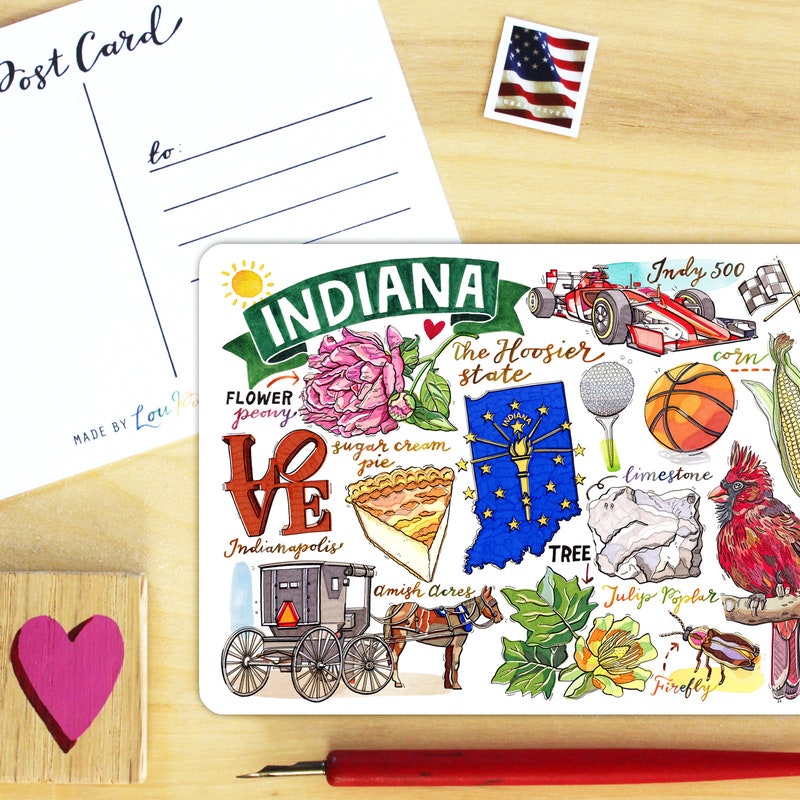 Post Card
to:
MADE BY Lou
INDIANA
Indy 500
the Hoosier
state
corn
FLOWER
peony
INDIANA
LOVE
sugar cream
pie
limestone
Indianapolis
TREE
Amish Acres
Tulip Poplar
Firefly